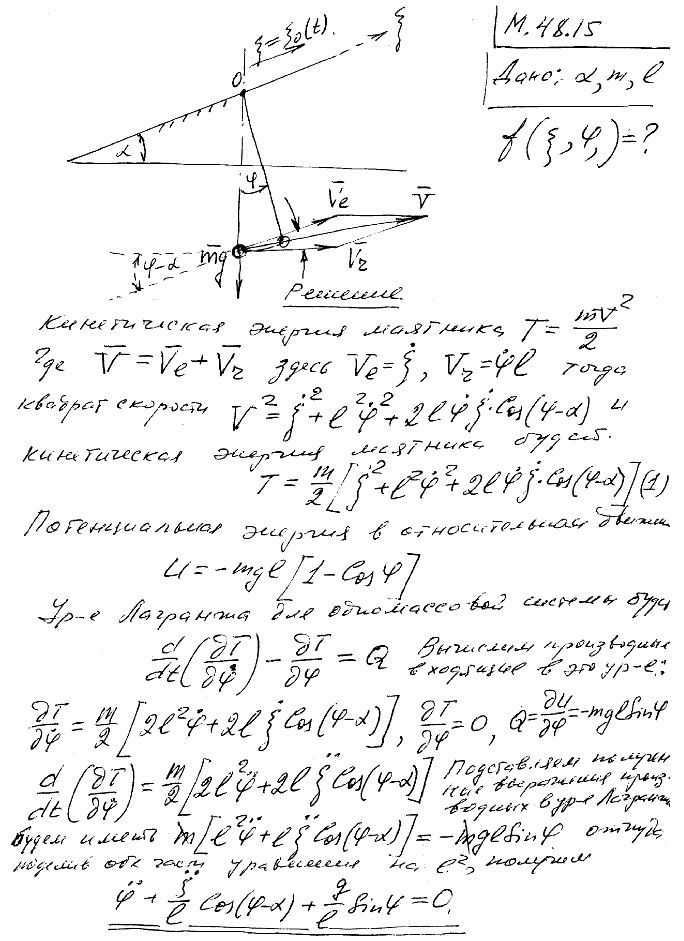 ξ = ξ₀(t).
ξ
М. 48.15
Дано: α, m, l
f(ξ, φ,) = ?
O
α
φ
V̄e
V̄
m̄g
V̄r
φ-α
Решение
Кинетическая энергия маятника T = mV²/2
где V̄ = V̄e + V̄r здесь Ve = ξ̇, Vr = φ̇l тогда
квадрат скорости V² = ξ̇² + l²φ̇² + 2lφ̇ξ̇·Cos(φ-α) и
кинетическая энергия маятника будет.
T = m/2 [ξ̇² + l²φ̇² + 2lφ̇ξ̇·Cos(φ-α)] (1)
Потенциальная энергия в относительном движении
U = -mgl [1 - Cosφ]
Ур-е Лагранжа для одномассовой системы будет
d/dt (∂T/∂φ̇) - ∂T/∂φ = Q Вычислим производные
входящие в это ур-е:
∂T/∂φ̇ = m/2 [2l²φ̇ + 2lξ̇ Cos(φ-α)], ∂T/∂φ = 0, Q = ∂U/∂φ = -mglSinφ
d/dt (∂T/∂φ̇) = m/2 [2l²φ̈ + 2lξ̈ Cos(φ-α)] Подставляем получен
ные выражения произ-
водных в ур-е Лагранжа
будем иметь m[l²φ̈ + lξ̈ Cos(φ-α)] = -mglSinφ откуда,
поделив обе части уравнения на l², получим
φ̈ + ξ̈/l Cos(φ-α) + g/l Sinφ = 0.